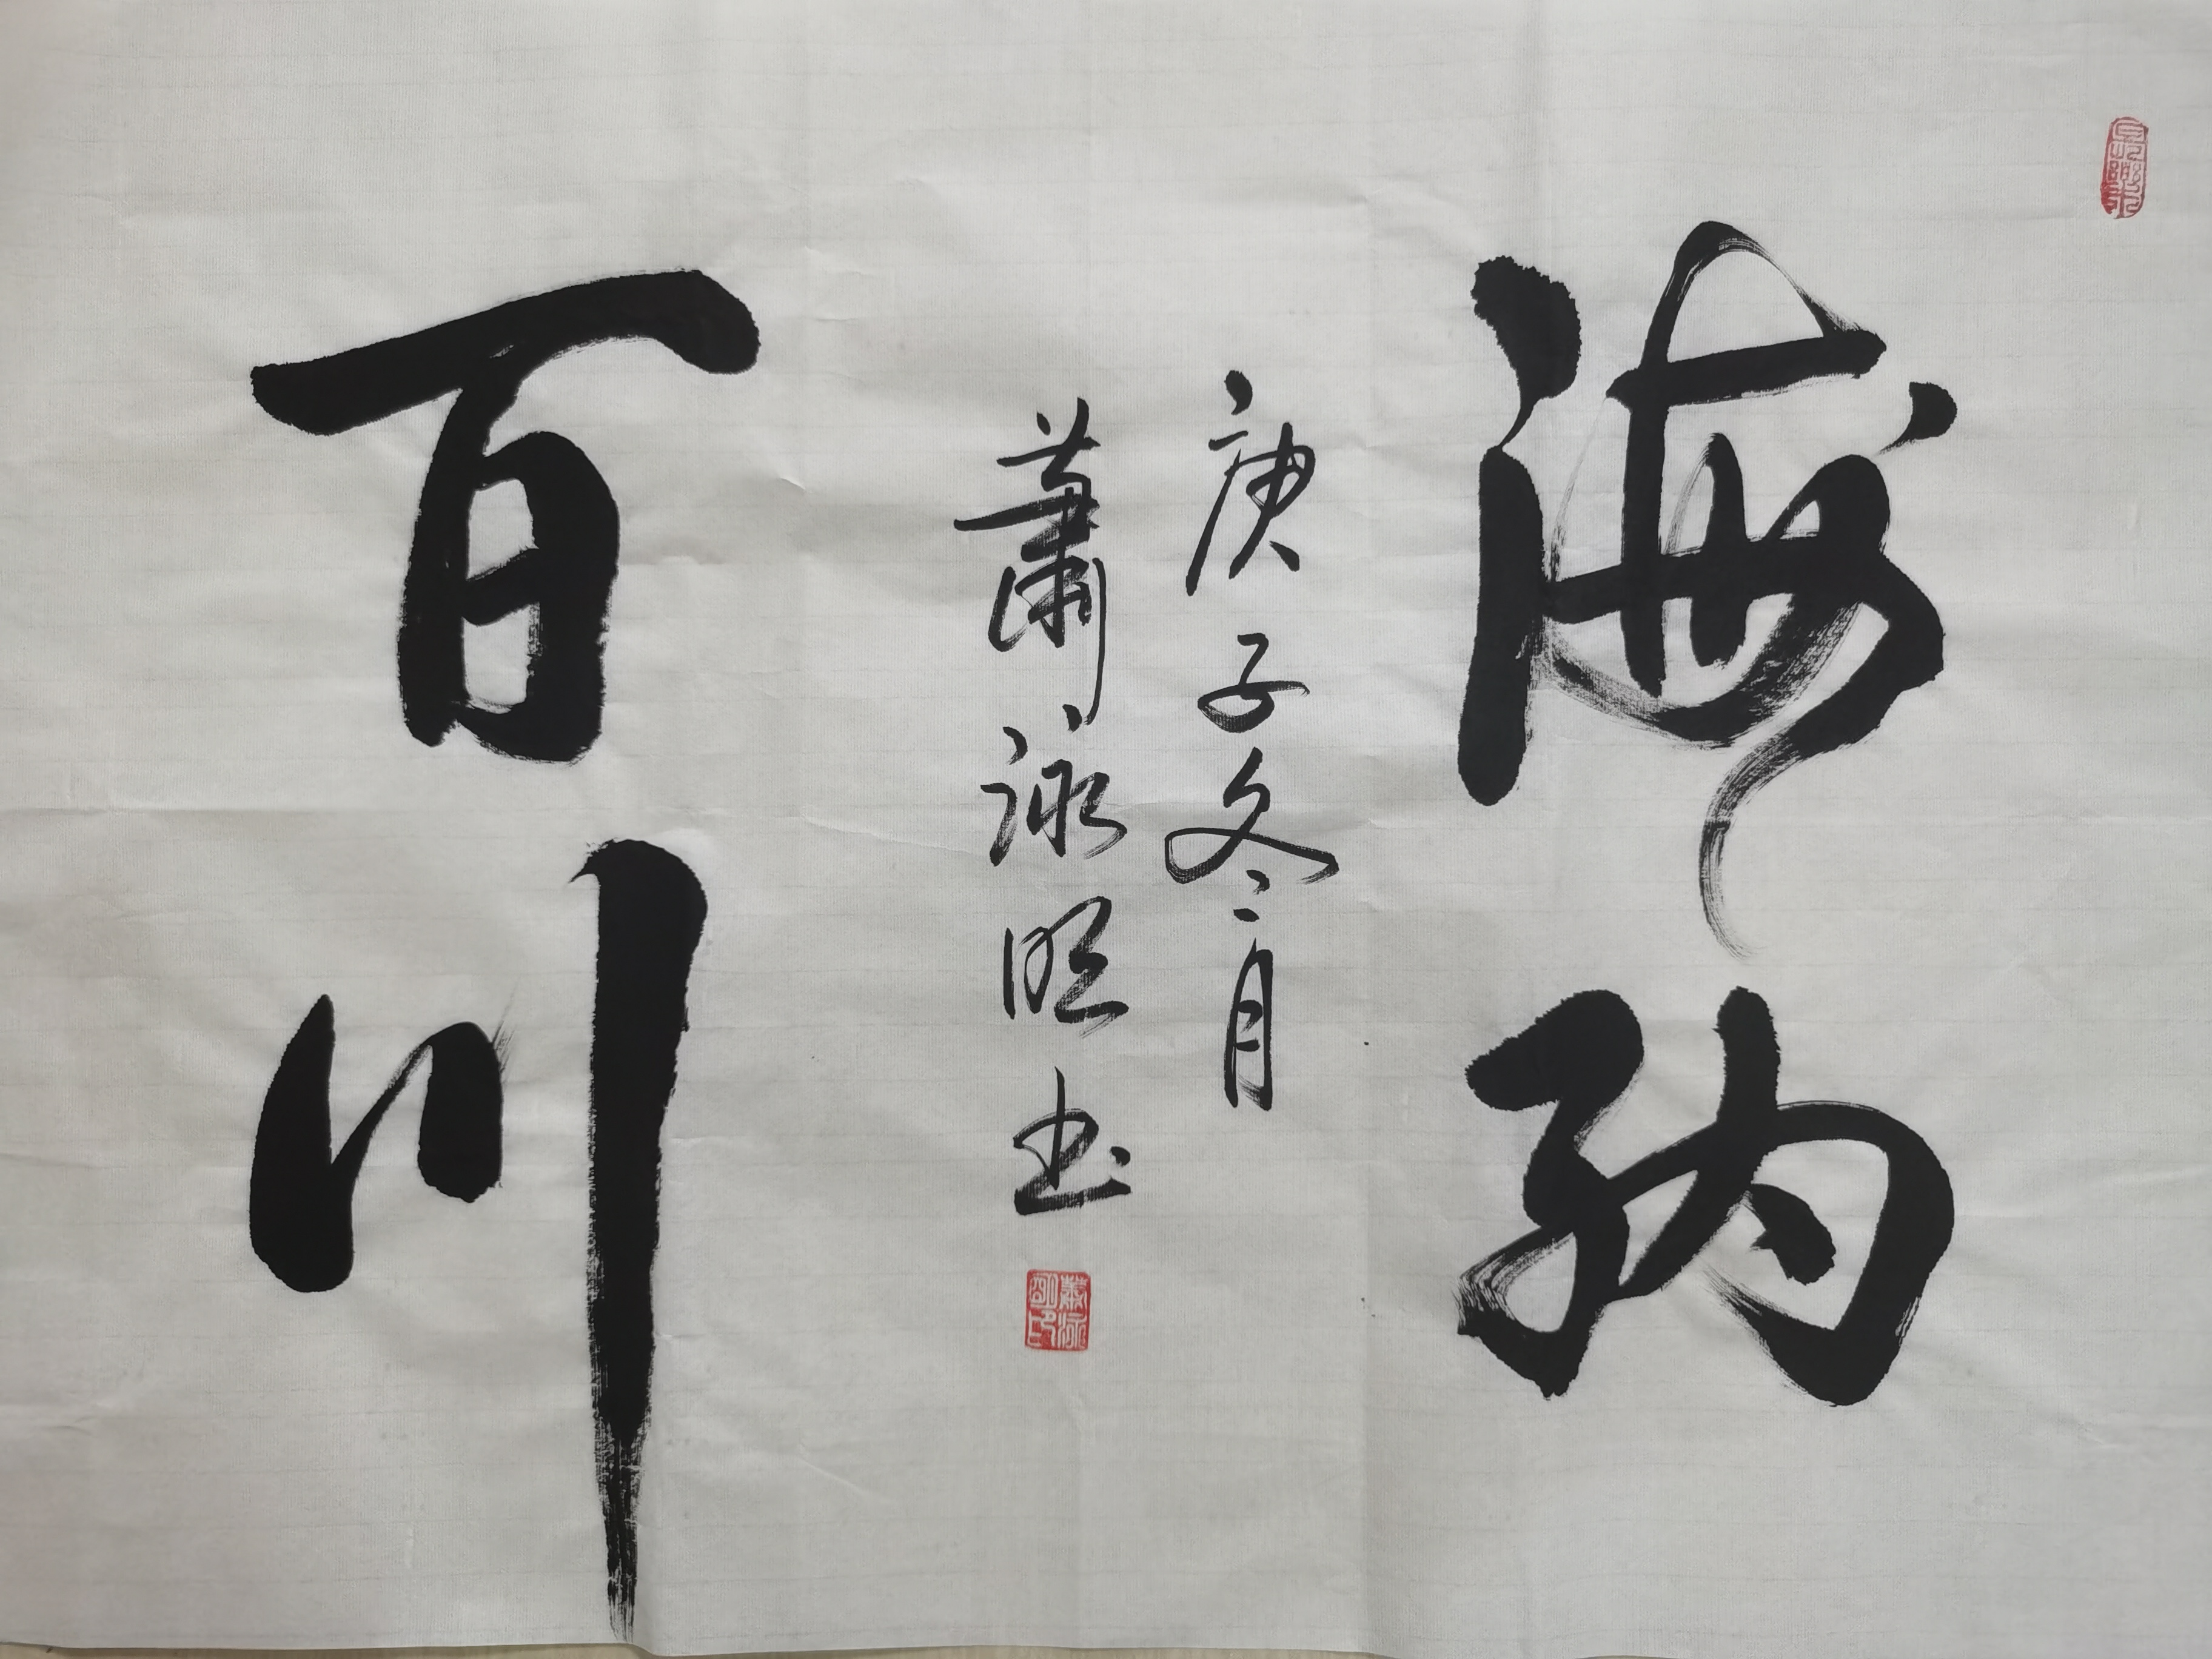 海纳
庚子冬月
萧泳明书
百川